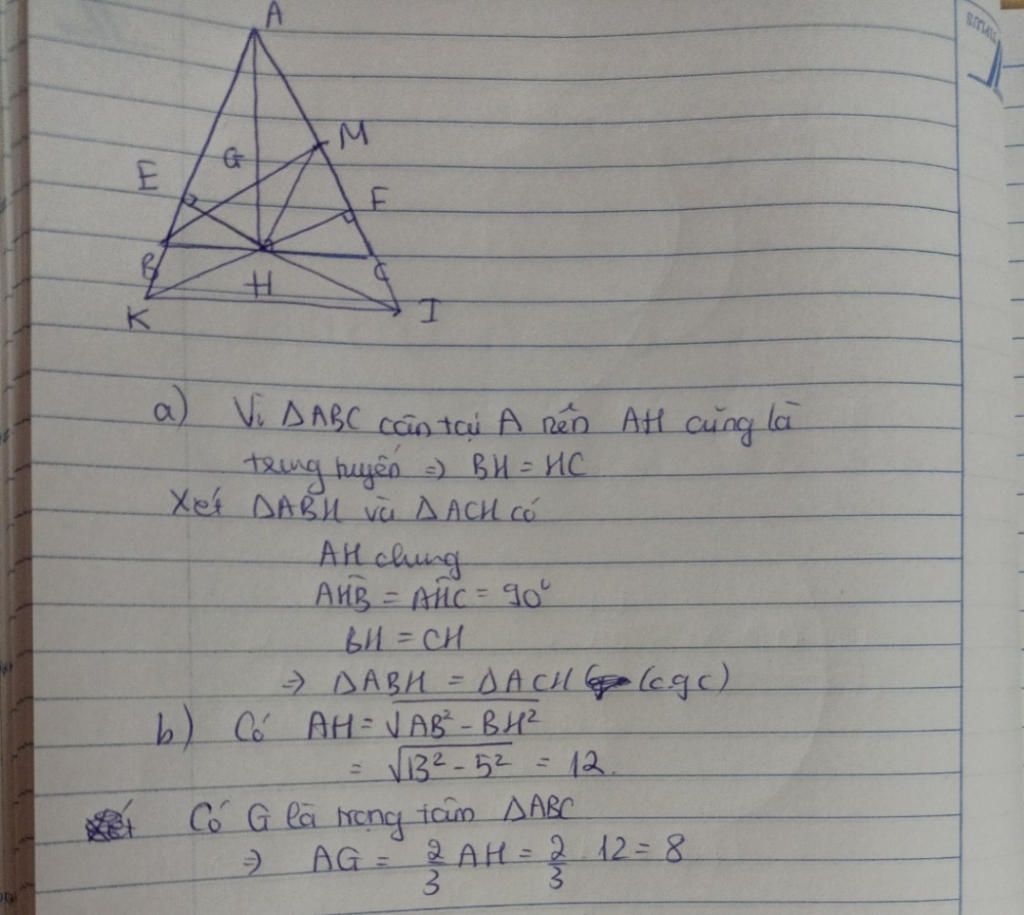 A
M
G
E
F
B
C
H
K
I
a) Vì ΔABC cân tại A nên AH cũng là
trung tuyến => BH = HC
Xét ΔABH và ΔACH có
AH chung
AĤB = AĤC = 90°
BH = CH
=> ΔABH = ΔACH (c.g.c)
b) Có AH = √AB² - BH²
= √13² - 5² = 12.
Có G là trọng tâm ΔABC
=> AG = 2/3 AH = 2/3 . 12 = 8